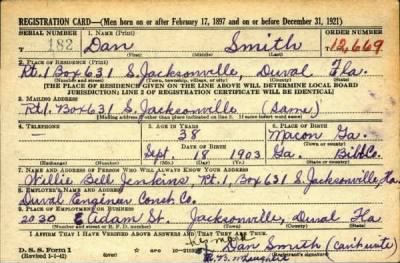 REGISTRATION CARD—(Men born on or after February 17, 1897 and on or before December 31, 1921)
SERIAL NUMBER 1. NAME (Print) ORDER NUMBER
182 Dan Smith 12,669
(First) (Middle) (Last)
2. PLACE OF RESIDENCE (Print)
Rt. 1 Box 631 S. Jacksonville, Duval Fla.
(Number and street) (Town, township, village, or city) (County) (State)
[THE PLACE OF RESIDENCE GIVEN ON THE LINE ABOVE WILL DETERMINE LOCAL BOARD
JURISDICTION; LINE 2 OF REGISTRATION CERTIFICATE WILL BE IDENTICAL]
3. MAILING ADDRESS
Rt 1. Box 631 S. Jacksonville (same)
[Mailing address if other than place indicated on line 2. If same insert word same]
4. TELEPHONE 5. AGE IN YEARS 6. PLACE OF BIRTH
38 Macon Ga.
DATE OF BIRTH (Town or county)
Sept. 18 1903 Ga. Bibb Co.
(Exchange) (Number) (Mo.) (Day) (Yr.) (State or country)
7. NAME AND ADDRESS OF PERSON WHO WILL ALWAYS KNOW YOUR ADDRESS
Willie Bell Jenkins, Rt. 1, Box 631 S. Jacksonville, Fla.
8. EMPLOYER'S NAME AND ADDRESS
Duval Engineer Const. Co.
9. PLACE OF EMPLOYMENT OR BUSINESS
2030 E Adam St. Jacksonville, Duval Fla
(Number and street or R. F. D. number) (Town) (County) (State)
I AFFIRM THAT I HAVE VERIFIED ABOVE ANSWERS AND THAT THEY ARE TRUE.
D. S. S. Form 1 GPO
(Revised 1-1-42) Dan Smith (can't write)
(Registrant's signature)